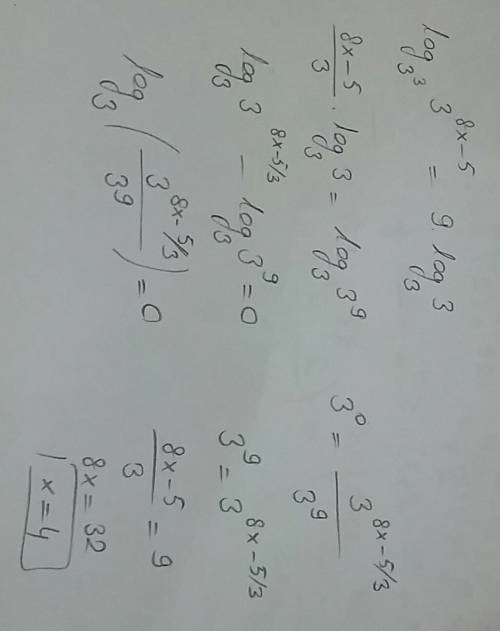 log_{3^3} 3^{8x-5} = 9. log_3 3
\frac{8x-5}{3} . log_3 3 = log_3 3^9
log_3 3^{8x-5/3} - log_3 3^9 = 0
log_3 (\frac{3^{8x-5/3}}{3^9}) = 0
3^0 = \frac{3^{8x-5/3}}{3^9}
3^9 = 3^{8x-5/3}
\frac{8x-5}{3} = 9
8x = 32
x = 4